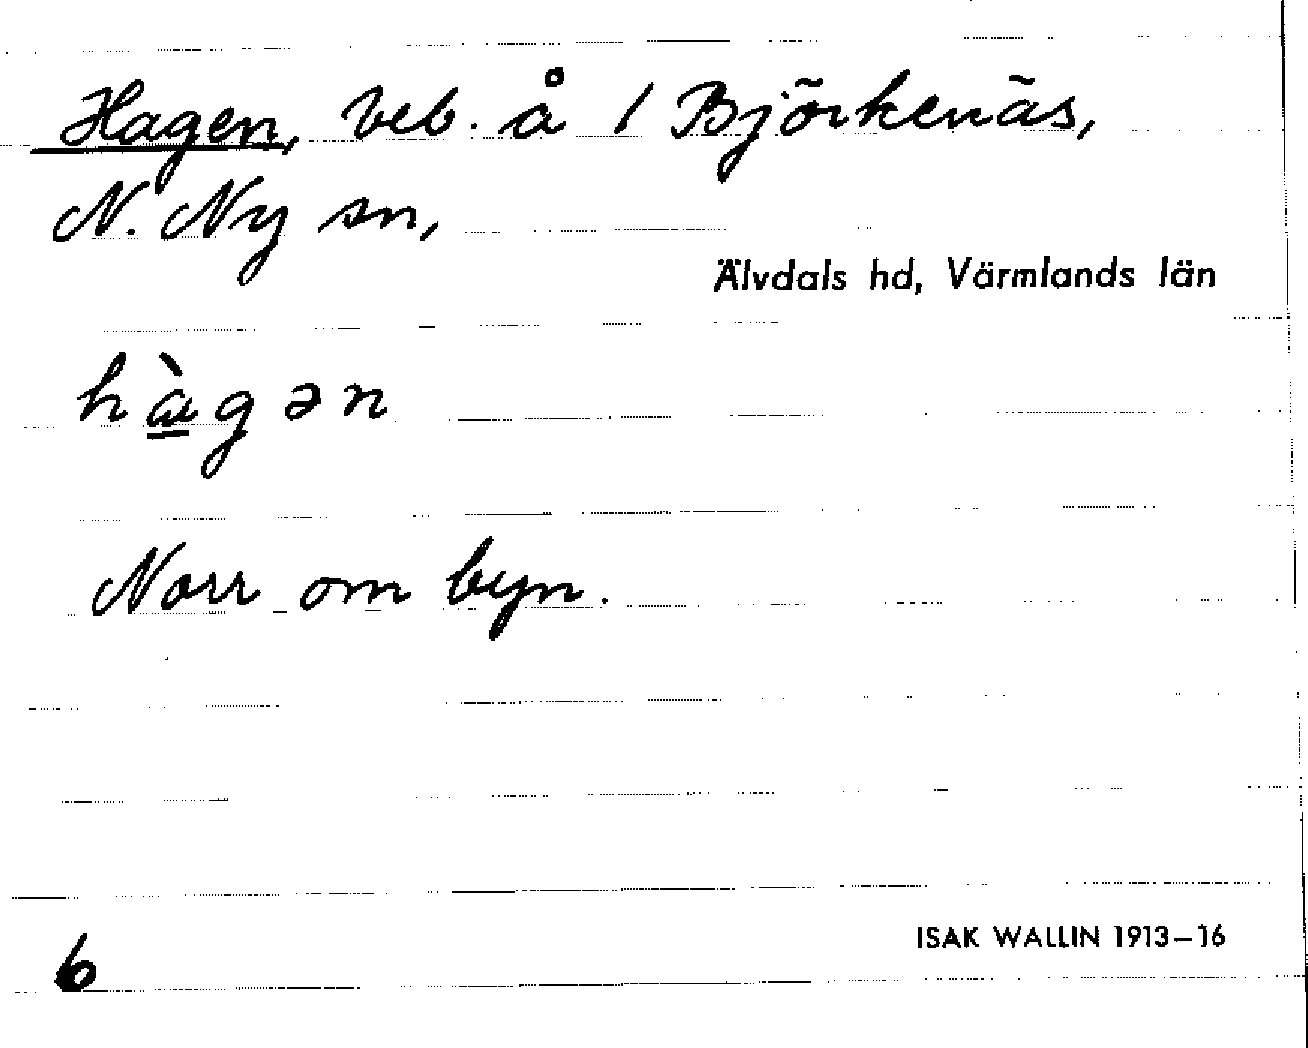 Hagen, beb. å 1 Björkenäs,
N. Ny sn,
Älvdals hd, Värmlands län
hà̲gən
Norr om byn.
6
ISAK WALLIN 1913–16